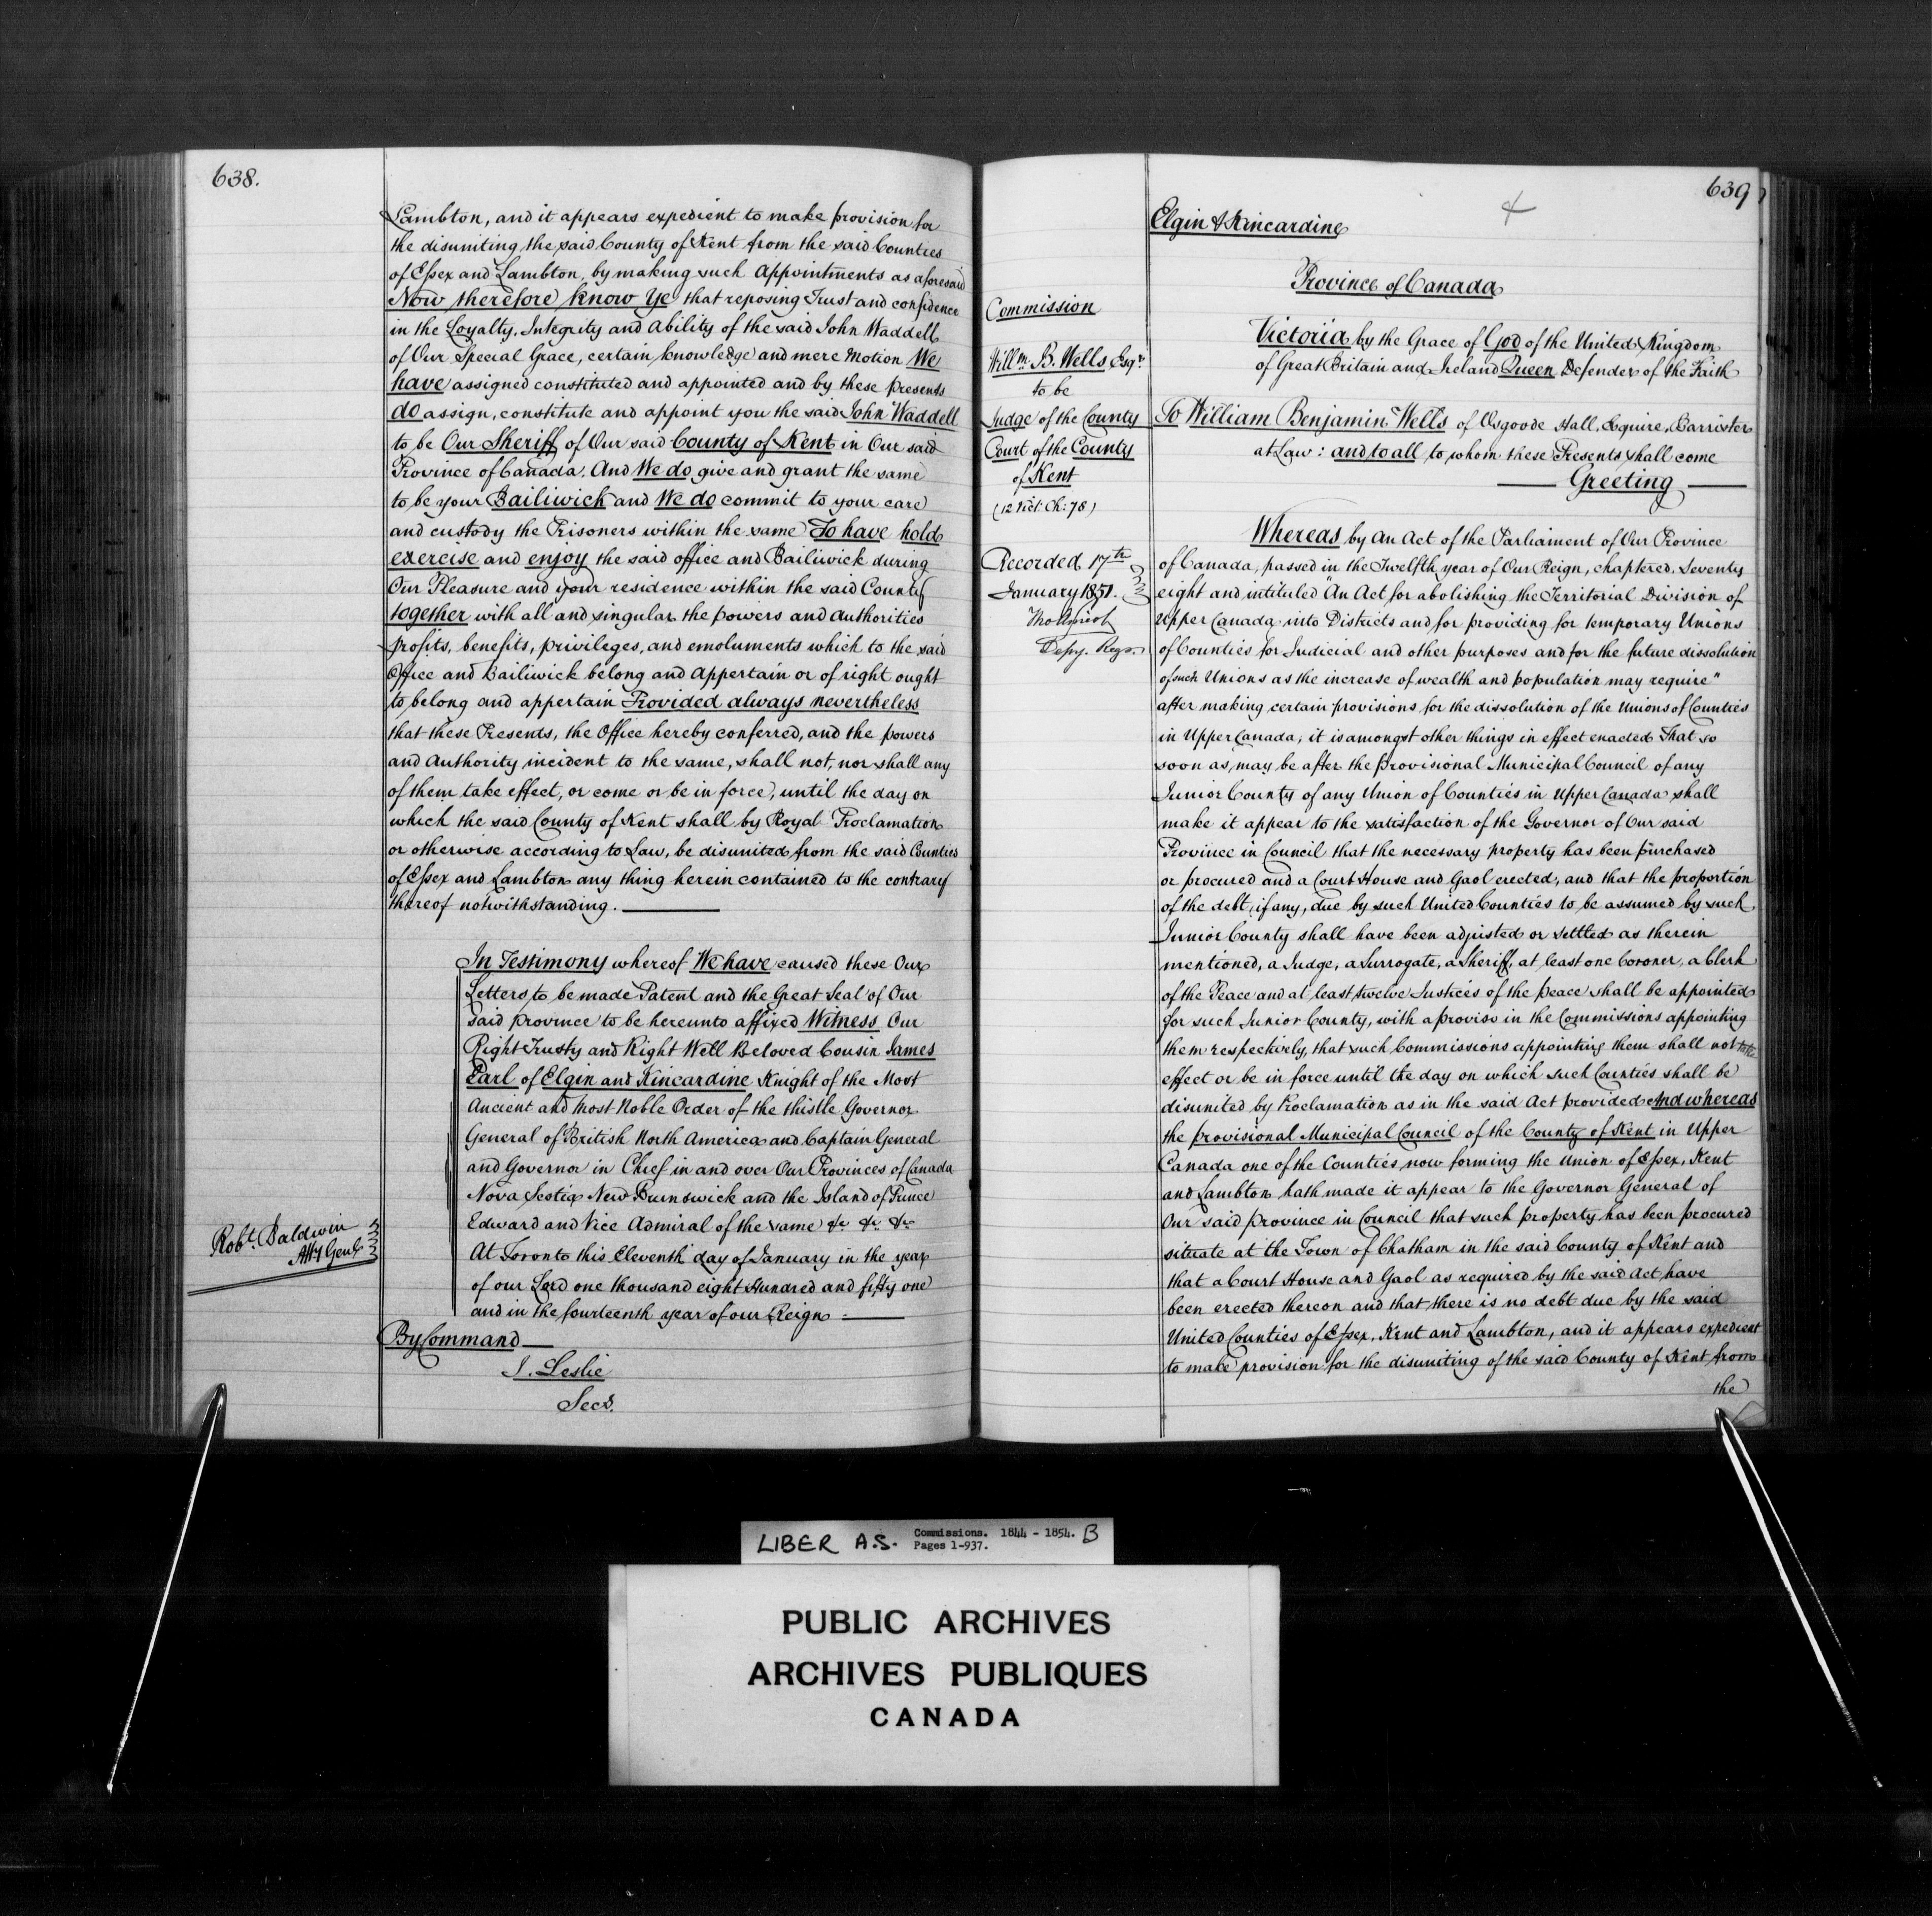 638.
Lambton, and it appears expedient to make provision for
the disuniting the said County of Kent from the said Counties
of Essex and Lambton, by making such Appointments as aforesaid
Now therefore know Ye that reposing Trust and confidence
in the Loyalty, Integrity and Ability of the said John Waddell
of Our Special Grace, certain knowledge and mere Motion We
have assigned constituted and appointed and by these presents
do assign, constitute and appoint you the said John Waddell
to be Our Sheriff of Our said County of Kent in Our said
Province of Canada. And We do give and grant the same
to be your Bailiwick and We do commit to your care
and custody the Prisoners within the same To have hold
exercise and enjoy the said office and Bailiwick during
Our Pleasure and your residence within the said County
together with all and singular the powers and Authorities
profits, benefits, privileges, and emoluments which to the said
Office and Bailiwick belong and appertain or of right ought
to belong and appertain Provided always nevertheless
that these Presents, the Office hereby conferred, and the powers
and Authority incident to the same, shall not, nor shall any
of them take effect, or come or be in force, until the day on
which the said County of Kent shall by Royal Proclamation
or otherwise according to Law, be disunited from the said Counties
of Essex and Lambton any thing herein contained to the contrary
thereof notwithstanding.
In Testimony whereof We have caused these Our
Letters to be made Patent and the Great Seal of Our
said province to be hereunto affixed Witness Our
Right Trusty and Right Well Beloved Cousin James
Earl of Elgin and Kincardine Knight of the Most
Ancient and Most Noble Order of the thistle Governor
General of British North America and Captain General
and Governor in Chief in and over Our Provinces of Canada
Nova Scotia New Brunswick and the Island of Prince
Edward and Vice Admiral of the same &c &c &c
At Toronto this Eleventh day of January in the year
of our Lord one thousand eight Hundred and fifty one
and in the fourteenth year of our Reign :
Robt. Baldwin
Atty Genl
By Command
J. Leslie
Secy.
639
Elgin & Kincardine
Province of Canada
Commission
Willm. B. Wells Esqr.
to be
Judge of the County
Court of the County
of Kent
(12 Vict: Ch: 78)
Recorded 17th
January 1851.
Depy. Regr.
Victoria by the Grace of God of the United Kingdom
of Great Britain and Ireland Queen Defender of the Faith
To William Benjamin Wells of Osgoode Hall, Esquire, Barrister
at Law : and to all to whom these Presents shall come
Greeting
Whereas by An Act of the Parliament of Our Province
of Canada, passed in the Twelfth year of Our Reign, chaptered, Seventy
eight and intituled "An Act for abolishing the Territorial Division of
Upper Canada into Districts and for providing for temporary Unions
of Counties for Judicial and other purposes and for the future dissolution
of such Unions as the increase of wealth and population may require"
after making certain provisions for the dissolution of the Unions of Counties
in Upper Canada, it is amongst other things in effect enacted That so
soon as may be after the provisional Municipal Council of any
Junior County of any Union of Counties in Upper Canada shall
make it appear to the satisfaction of the Governor of Our said
Province in Council that the necessary property has been purchased
or procured and a Court House and Gaol erected, and that the proportion
of the debt, if any, due by such United Counties to be assumed by such
Junior County shall have been adjusted or settled as therein
mentioned, a Judge, a Surrogate, a Sheriff, at least one Coroner, a Clerk
of the Peace and at least twelve Justices of the peace shall be appointed
for such Junior County, with a proviso in the Commissions appointing
them respectively, that such Commissions appointing them shall not take
effect or be in force until the day on which such Counties shall be
disunited by Proclamation as in the said Act provided And whereas
the provisional Municipal Council of the County of Kent in Upper
Canada one of the Counties now forming the Union of Essex, Kent
and Lambton hath made it appear to the Governor General of
Our said province in Council that such property has been procured
situate at the Town of Chatham in the said County of Kent and
that a Court House and Gaol as required by the said Act, have
been erected thereon and that there is no debt due by the said
United Counties of Essex, Kent and Lambton, and it appears expedient
to make provision for the disuniting of the said County of Kent from
the
LIBER A.S. Commissions. 1844 - 1854. B
Pages 1-937.
PUBLIC ARCHIVES
ARCHIVES PUBLIQUES
CANADA